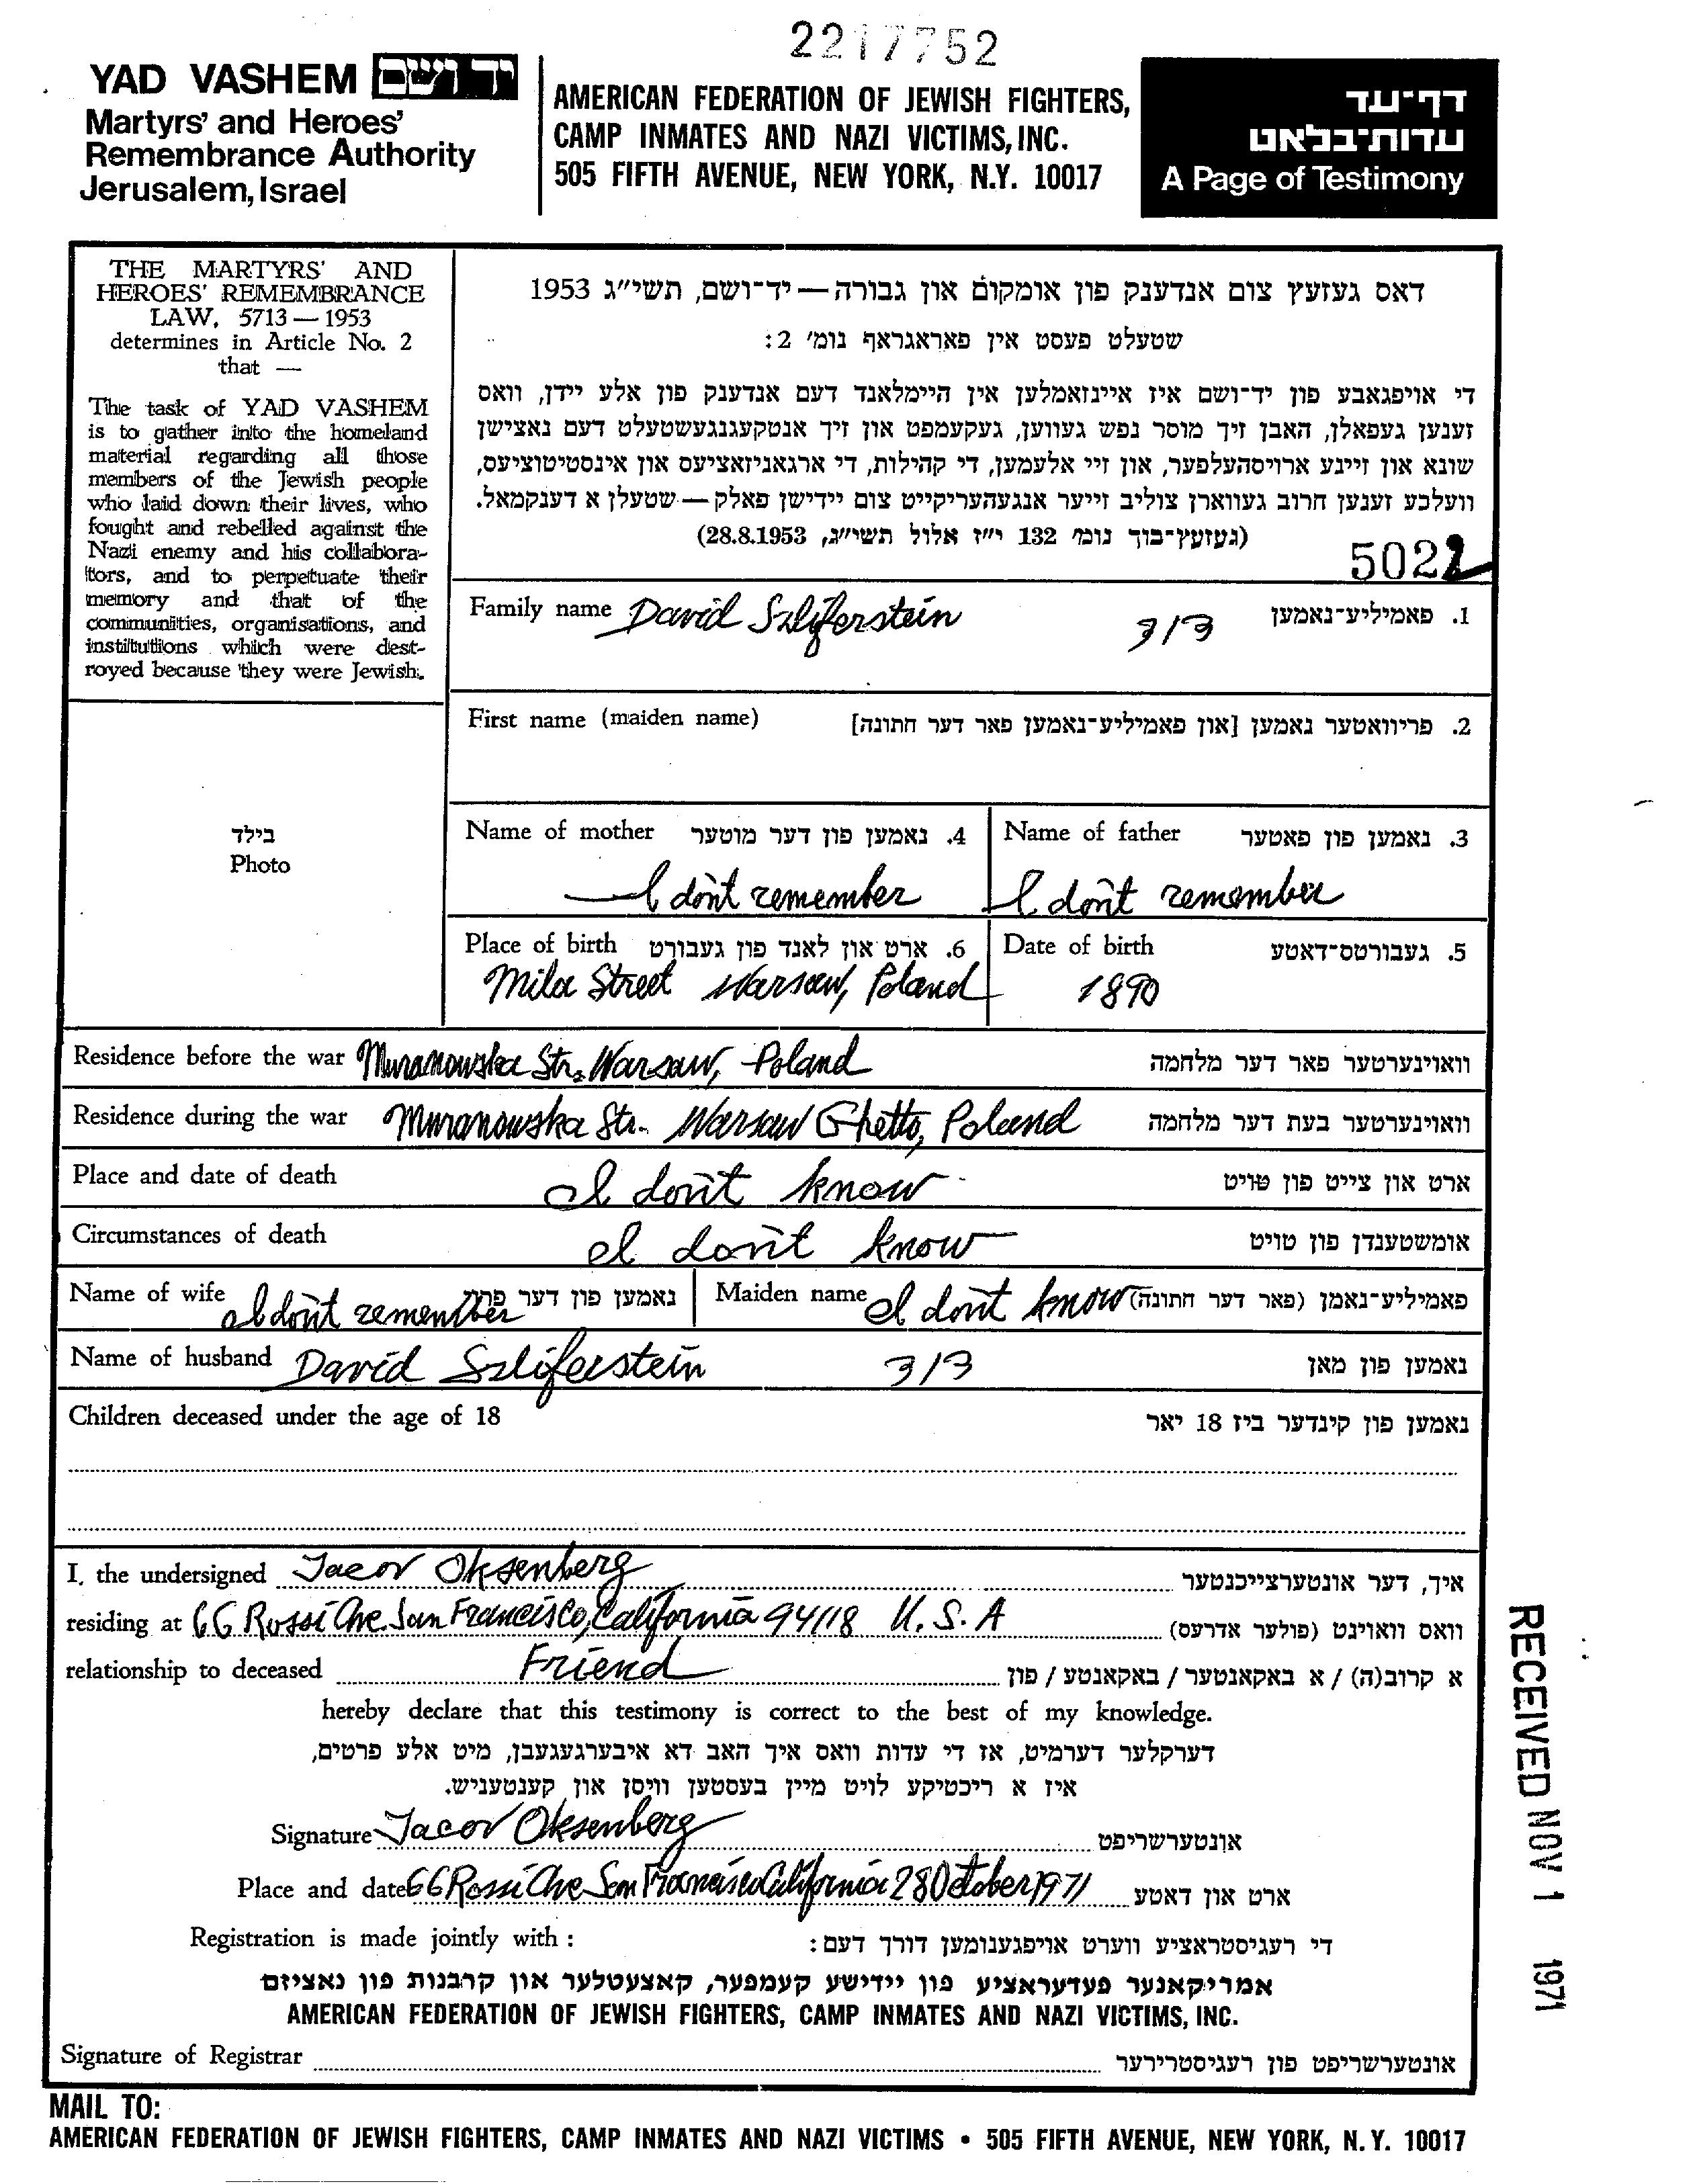 2217752
YAD VASHEM יד ושם
Martyrs' and Heroes'
Remembrance Authority
Jerusalem, Israel
AMERICAN FEDERATION OF JEWISH FIGHTERS,
CAMP INMATES AND NAZI VICTIMS, INC.
505 FIFTH AVENUE, NEW YORK, N.Y. 10017
דף־עד
עדות־בלאט
A Page of Testimony
THE MARTYRS' AND
HEROES' REMEMBRANCE
LAW, 5713 — 1953
determines in Article No. 2
that —
The task of YAD VASHEM
is to gather into the homeland
material regarding all those
members of the Jewish people
who laid down their lives, who
fought and rebelled against the
Nazi enemy and his collabora-
tors, and to perpetuate their
memory and that of the
communities, organisations, and
institutions which were dest-
royed because they were Jewish.
דאס געזעץ צום אנדענק פון אומקום און גבורה — יד־ושם, תשי״ג 1953
שטעלט פעסט אין פאראגראף נומ׳ 2:
די אויפגאבע פון יד־ושם איז איינזאמלען אין היימלאנד דעם אנדענק פון אלע יידן, וואס
זענען געפאלן, האבן זיך מוסר נפש געווען, געקעמפט און זיך אנטקעגנגעשטעלט דעם נאצישן
שונא און זיינע ארויסהעלפער, און זיי אלעמען, די קהילות, די ארגאניזאציעס און אינסטיטוציעס,
וועלכע זענען חרוב געווארן צוליב זייער אנגעהעריקייט צום יידישן פאלק — שטעלן א דענקמאל.
(געזעץ־בוך נומ׳ 132 י״ז אלול תשי״ג, 28.8.1953)
5022
Family name David Szliferstein 3/3 1. פאמיליע־נאמען
First name (maiden name) 2. פריוואטער נאמען [און פאמיליע־נאמען פאר דער חתונה]
בילד
Photo
Name of mother 4. נאמען פון דער מוטער
I don't remember
Name of father 3. נאמען פון פאטער
I don't remember
Place of birth 6. ארט און לאנד פון געבורט
Mila Street Warsaw, Poland
Date of birth 5. געבורטס־דאטע
1890
Residence before the war Muranowska Str. Warsaw, Poland וואוינערטער פאר דער מלחמה
Residence during the war Muranowska Str. Warsaw Ghetto, Poland וואוינערטער בעת דער מלחמה
Place and date of death I don't know ארט און צייט פון טויט
Circumstances of death I don't know אומשטענדן פון טויט
Name of wife I don't remember נאמען פון דער פרוי
Maiden name I don't know פאמיליע־נאמן (פאר דער חתונה)
Name of husband David Szliferstein 3/3 נאמען פון מאן
Children deceased under the age of 18 נאמען פון קינדער ביז 18 יאר
I, the undersigned Jacov Oksenberg איך, דער אונטערצייכנטער
residing at 66 Rossi Ave. San Francisco, California 94118 U.S.A וואס וואוינט (פולער אדרעס)
relationship to deceased Friend א קרוב(ה) / א באקאנטער / באקאנטע / פון
hereby declare that this testimony is correct to the best of my knowledge.
דערקלער דערמיט, אז די עדות וואס איך האב דא איבערגעגעבן, מיט אלע פרטים,
איז א ריכטיקע לויט מיין בעסטען וויסן און קענטעניש.
Signature Jacov Oksenberg אונטערשריפט
Place and date 66 Rossi Ave San Francisco California 28 October 1971 ארט און דאטע
Registration is made jointly with : די רעגיסטראציע ווערט אויפגענומען דורך דעם:
אמריקאנער פעדעראציע פון יידישע קעמפער, קאצעטלער און קרבנות פון נאציזם
AMERICAN FEDERATION OF JEWISH FIGHTERS, CAMP INMATES AND NAZI VICTIMS, INC.
Signature of Registrar אונטערשריפט פון רעגיסטרירער
RECEIVED NOV 1 1971
MAIL TO:
AMERICAN FEDERATION OF JEWISH FIGHTERS, CAMP INMATES AND NAZI VICTIMS • 505 FIFTH AVENUE, NEW YORK, N.Y. 10017